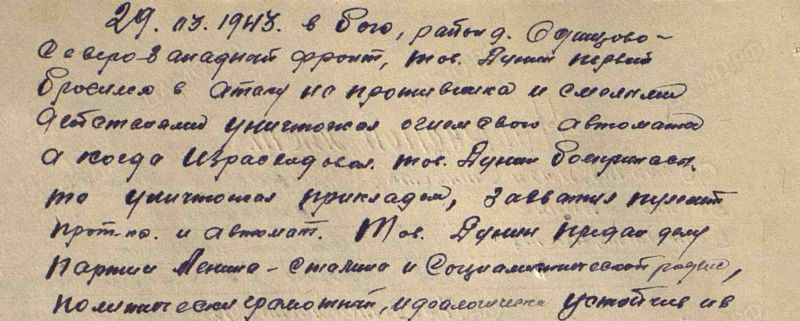 29. 03. 1943. в бою, район д. Одинцово-
Северо-Западный фронт, тов. Дунин первый
бросился в атаку на противника и смелыми
действиями уничтожал огнем своего автомата
а когда израсходовал тов. Дунин боеприпасы,
то уничтожал прикладом, захватил пулемет
прот-ка. и автомат. Тов. Дунин предан делу
партии Ленина-Сталина и Социалистической родине,
политически грамотный, идеологически устойчив и в